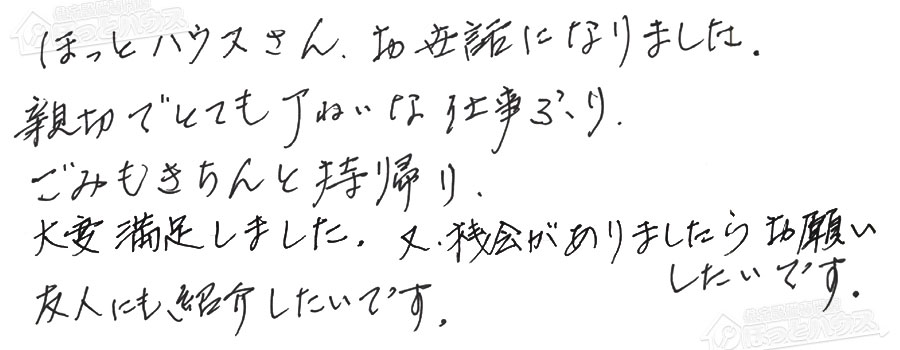 ほっとハウスさん、お世話になりました。
親切でとても丁ねいな仕事ぶり。
ごみもきちんと持帰り、
大変満足しました。又、機会がありましたらお願い
したいです。
友人にも紹介したいです。
住宅設備専門
ほっとハウス
住宅設備専門
ほっとハウス